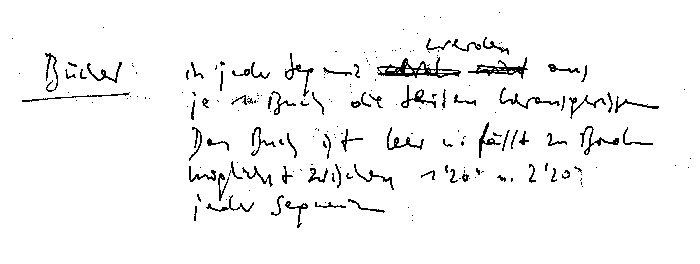 werden
Bücher in jeder Sequenz aus
je 1 Buch die Seiten herausgerissen
Das Buch ist leer u. fällt zu Boden
möglichst zwischen 1'20" u. 2'20"
jeder Sequenz